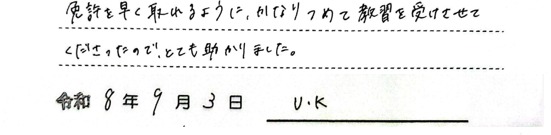 免許を早く取れるように、かなりつめて教習を受けさせて
くださったので、とても助かりました。
令和 8 年 9 月 3 日 U.K